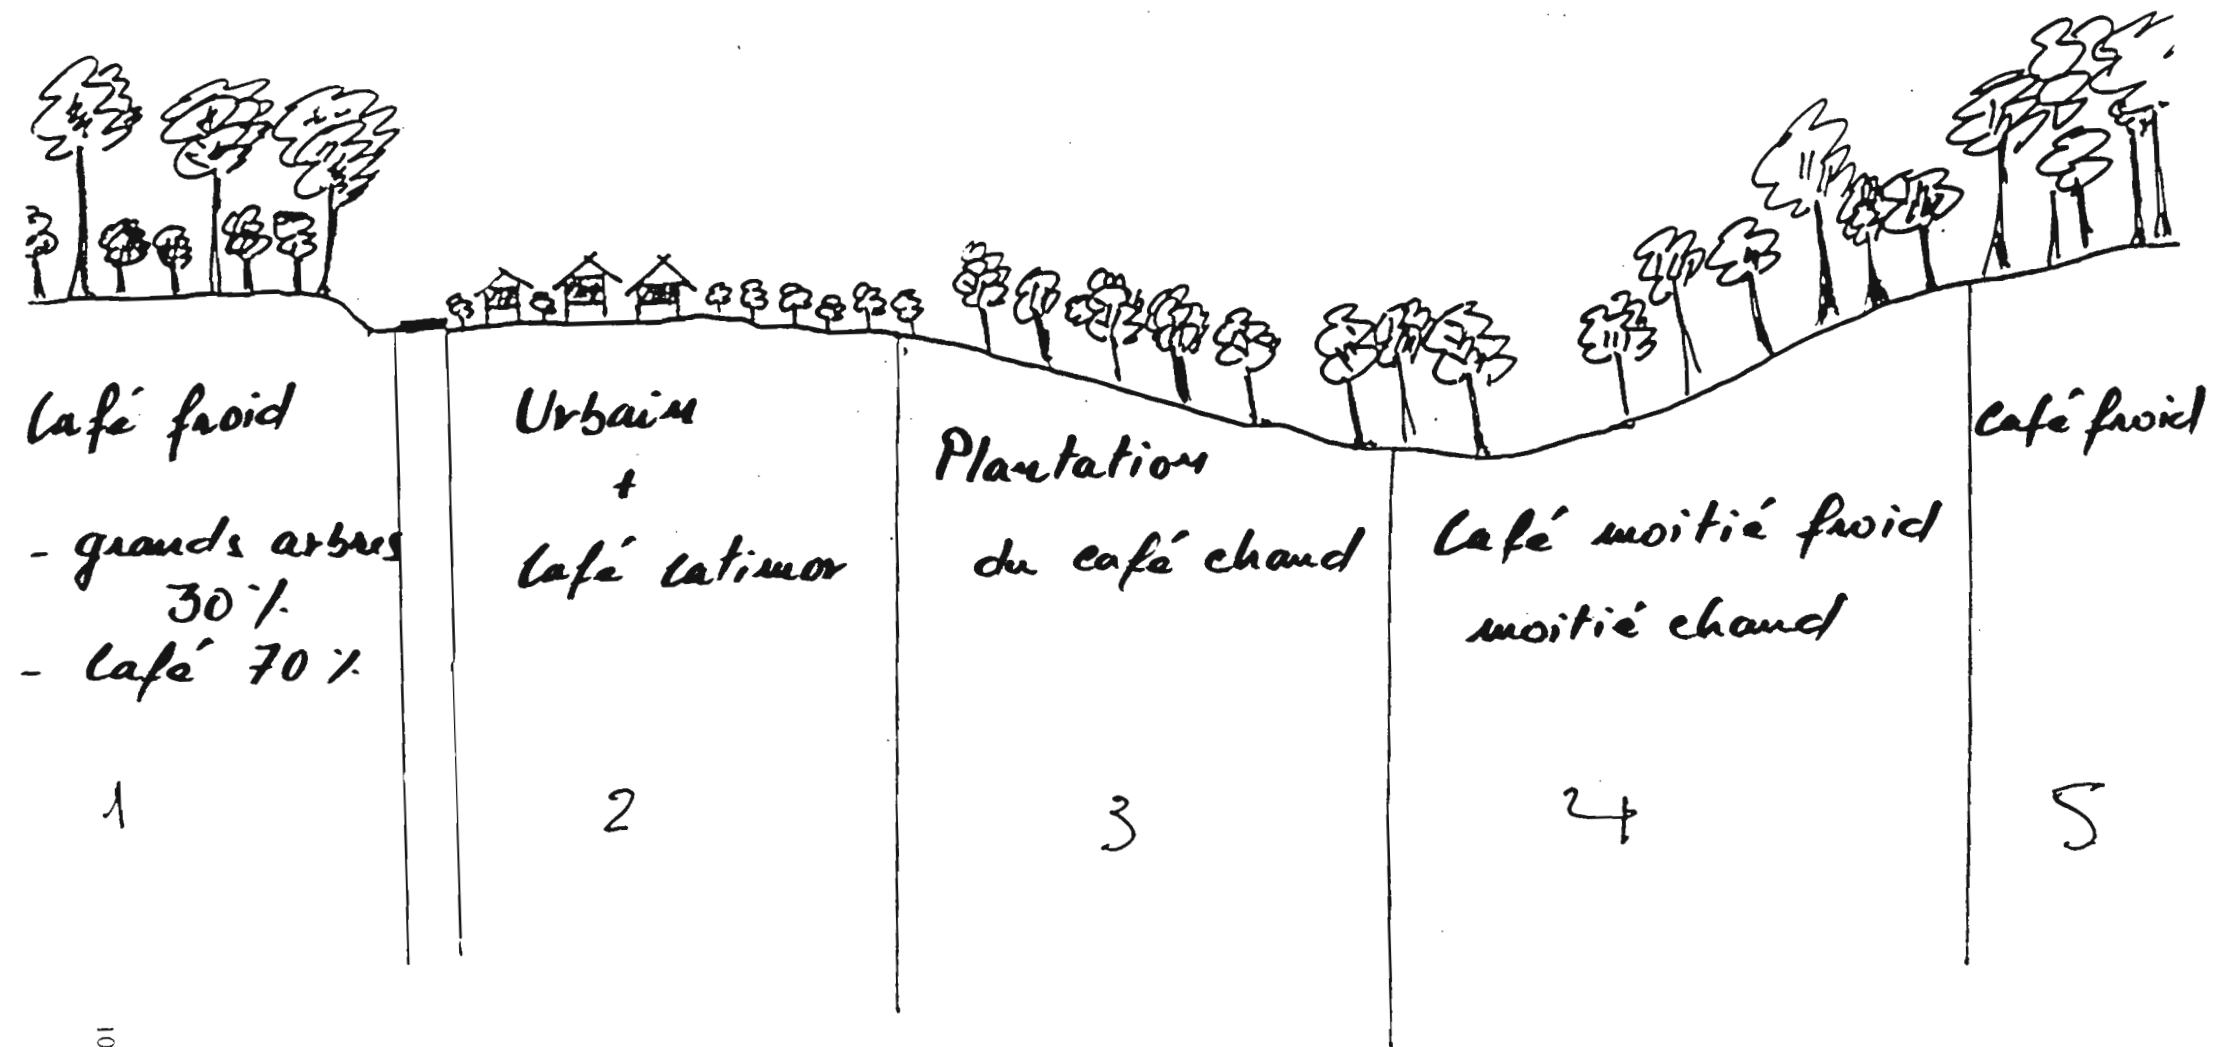 Café froid
- grands arbres
30 %
- Café 70 %
1
Urbain
+
Café catimor
2
Plantation
du café chaud
3
Café moitié froid
moitié chaud
4
Café froid
5
10